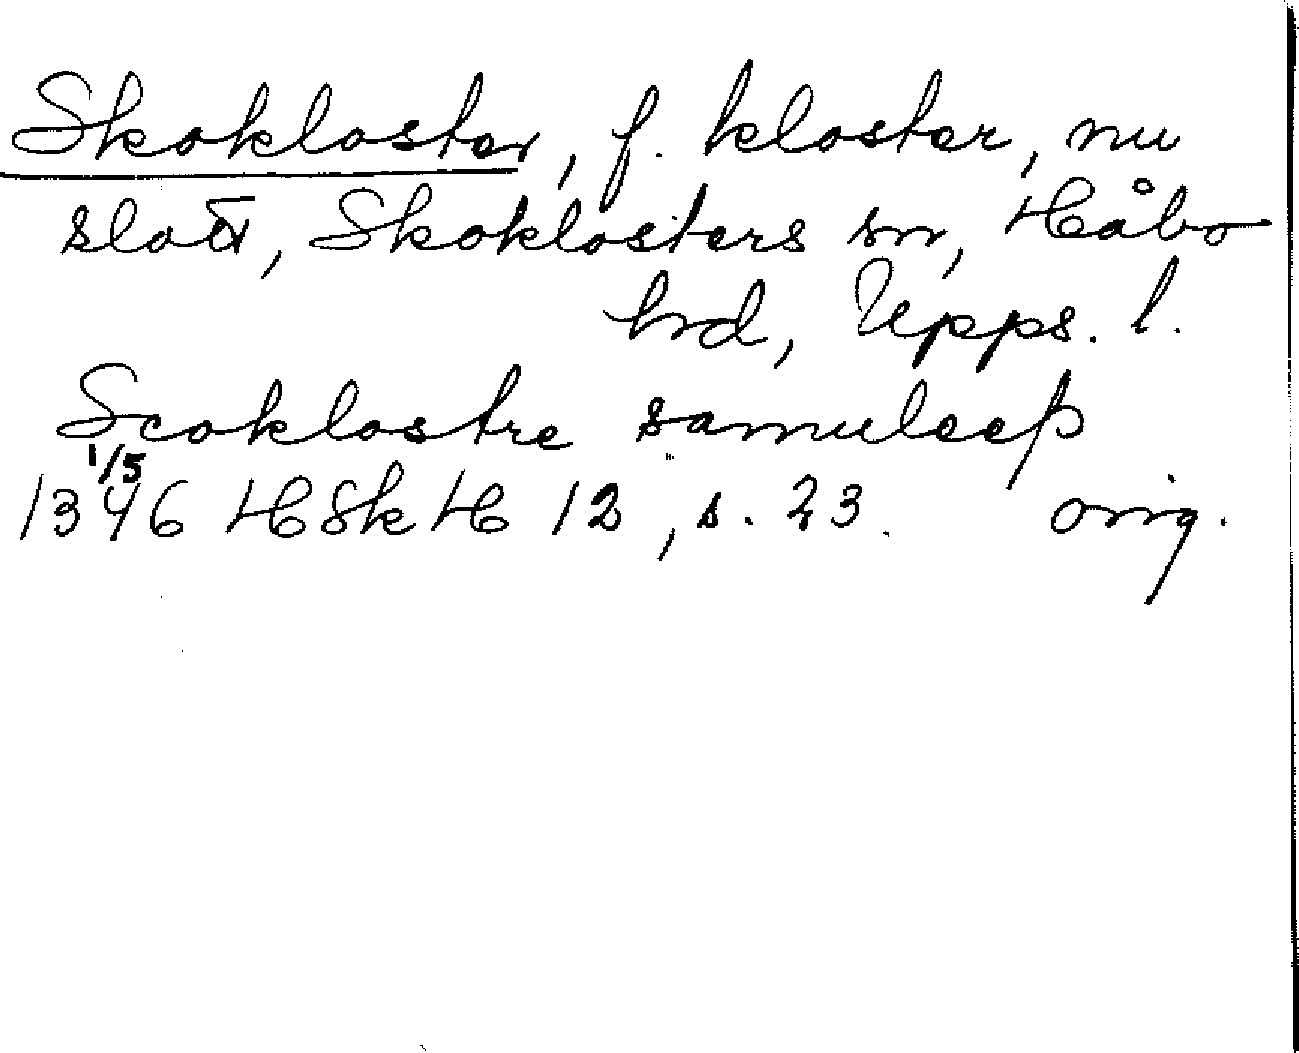 Skokloster, f. kloster, nu
slott, Skoklosters sn, Håbo
hrd, Upps. l.
Scoklostre samuleeþ
1/5
1346 HSkH 12, s. 23. orig.